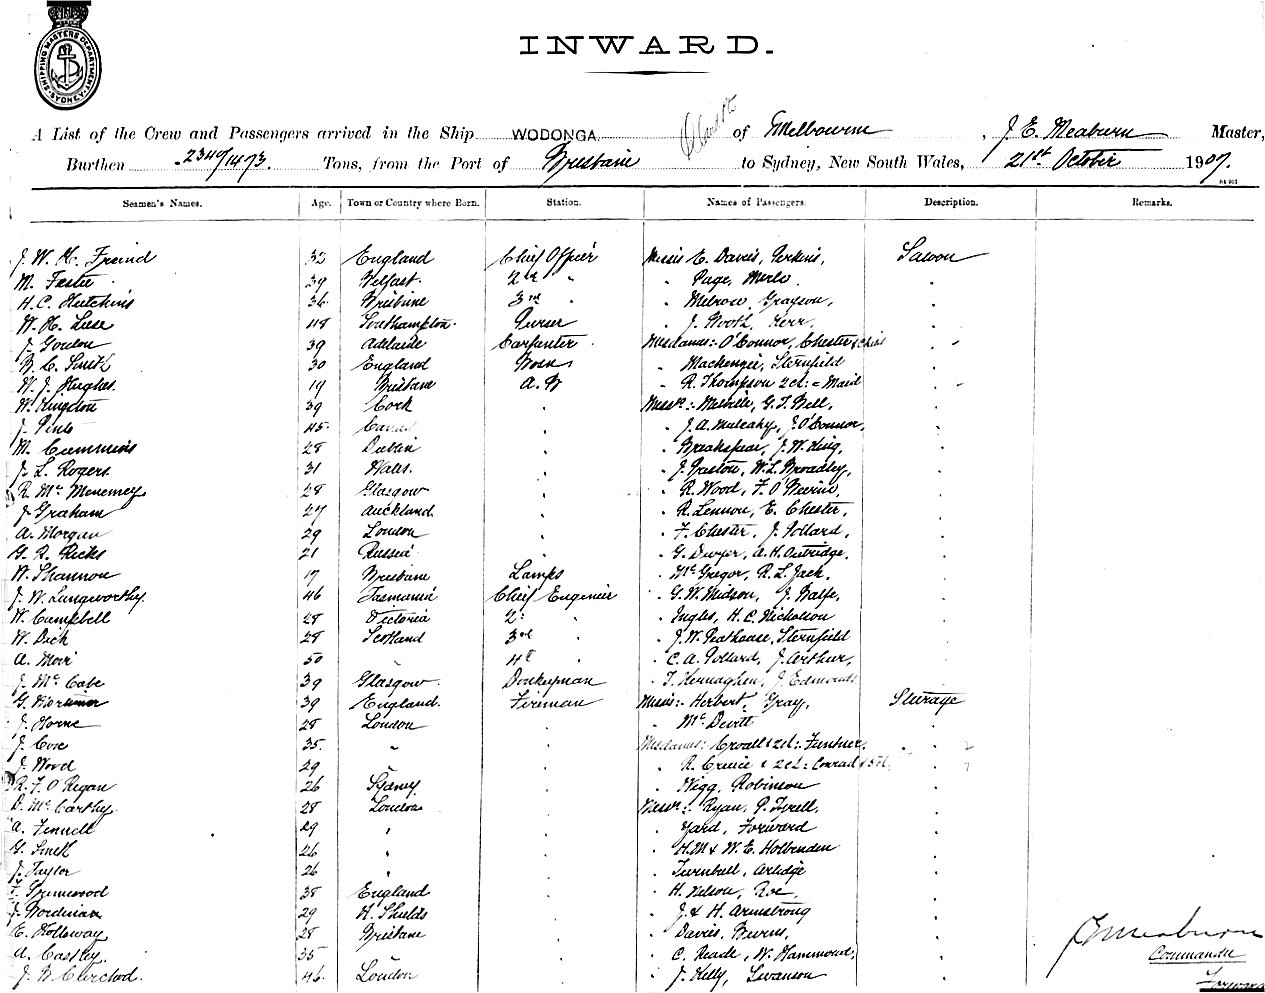 SHIPPING MASTERS DEPARTMENT SYDNEY
INWARD.
A List of the Crew and Passengers arrived in the Ship WODONGA of Melbourne, J. E. Meaburn Master,
Burthen 2340/1473. Tons, from the Port of Brisbane to Sydney, New South Wales, 21st October 1907.
Seamen's Names. Age. Town or Country where Born. Station. Names of Passengers. Description. Remarks.
J. W. H. Freind 32 England Chief Officer Misses E. Davis, Perkins, Saloon
M. 39 Belfast 2nd " " Page, Merle "
H. C. Hutchins 36 Brisbane 3rd " " Melrose, Grayson, "
W. H. Lese 48 Southampton Purser " J. Kerr, "
J. Goudon 39 Adelaide Carpenter Mesdames:- O'Connor, Chester & Child "
B. C. Smith 30 England Bosn " Mackenzie, Sternfield "
W. J. Hughes 19 Brisbane A. B " R. Thompson 2 cl: - Maid "
W. Kingston 39 Cork " Messrs:- Melville, G. T. Bell, "
J. Pinto 45 " " J. A. Mulcahy, J. O'Connor, "
M. Cummins 28 Dublin " " Breakspear, J. W. King, "
J. L. Rogers 31 Wales " " J. Preston, W. L. Broadley, "
R. McMenemey 28 Glasgow " " R. Wood, F. O'Beirne, "
J. Graham 27 Auckland " " R. Lennon, E. Chester, "
A. Morgan 29 London " " F. Chester, J. Pollard, "
G. R. Ricks 21 Russia " " G. Dwyer, A. H. Outridge, "
W. Shannon 17 Brisbane Lamps " McGregor, R. L. Jack, "
J. W. Langworthy 46 Tasmania Chief Engineer " G. W. Midson, J. Balfe, "
W. Campbell 28 Victoria 2: " " Ingles, H. C. Nicholson "
W. Dick 28 Scotland 3rd " " J. W. Sternfield "
A. Moir 50 " 4th " " C. A. Pollard, J. Arthur, "
J. McCabe 39 Glasgow Donkeyman " T. Hernaghen, J. Edmonds "
G. Mortimer 39 England. Fireman Misses:- Herbert, Gray, Steerage
J. Horne 28 London " " McDevitt "
J. Cove 35 " " Mesdames: Croall & 2 cl:
J. Wood 29 " " " R. & 2 cl: Conrad
R. F. O'Regan 26 Sydney " " Wigg, Robinson "
D. McCarthy 28 London " Messrs:- Ryan, P. Tyrell, "
A. Fennell 29 " " " Yard, Forward "
G. Smith 26 " " " H. M & W. E. Holbenden "
J. Taylor 26 " " " Turnbull, Arlidge "
F. Grunwood 38 England " " H. Nelson, Roe, "
J. Bordman 29 N. Shields " " J. & H. Armstrong "
E. Holloway 28 Brisbane " " Davis, Burns, "
A. Castley 35 " " C. Reade, W. Hammond, "
J. B. Clerehed 46 London " " J. Kelly, Swanson "
J E Meaburn
Commander